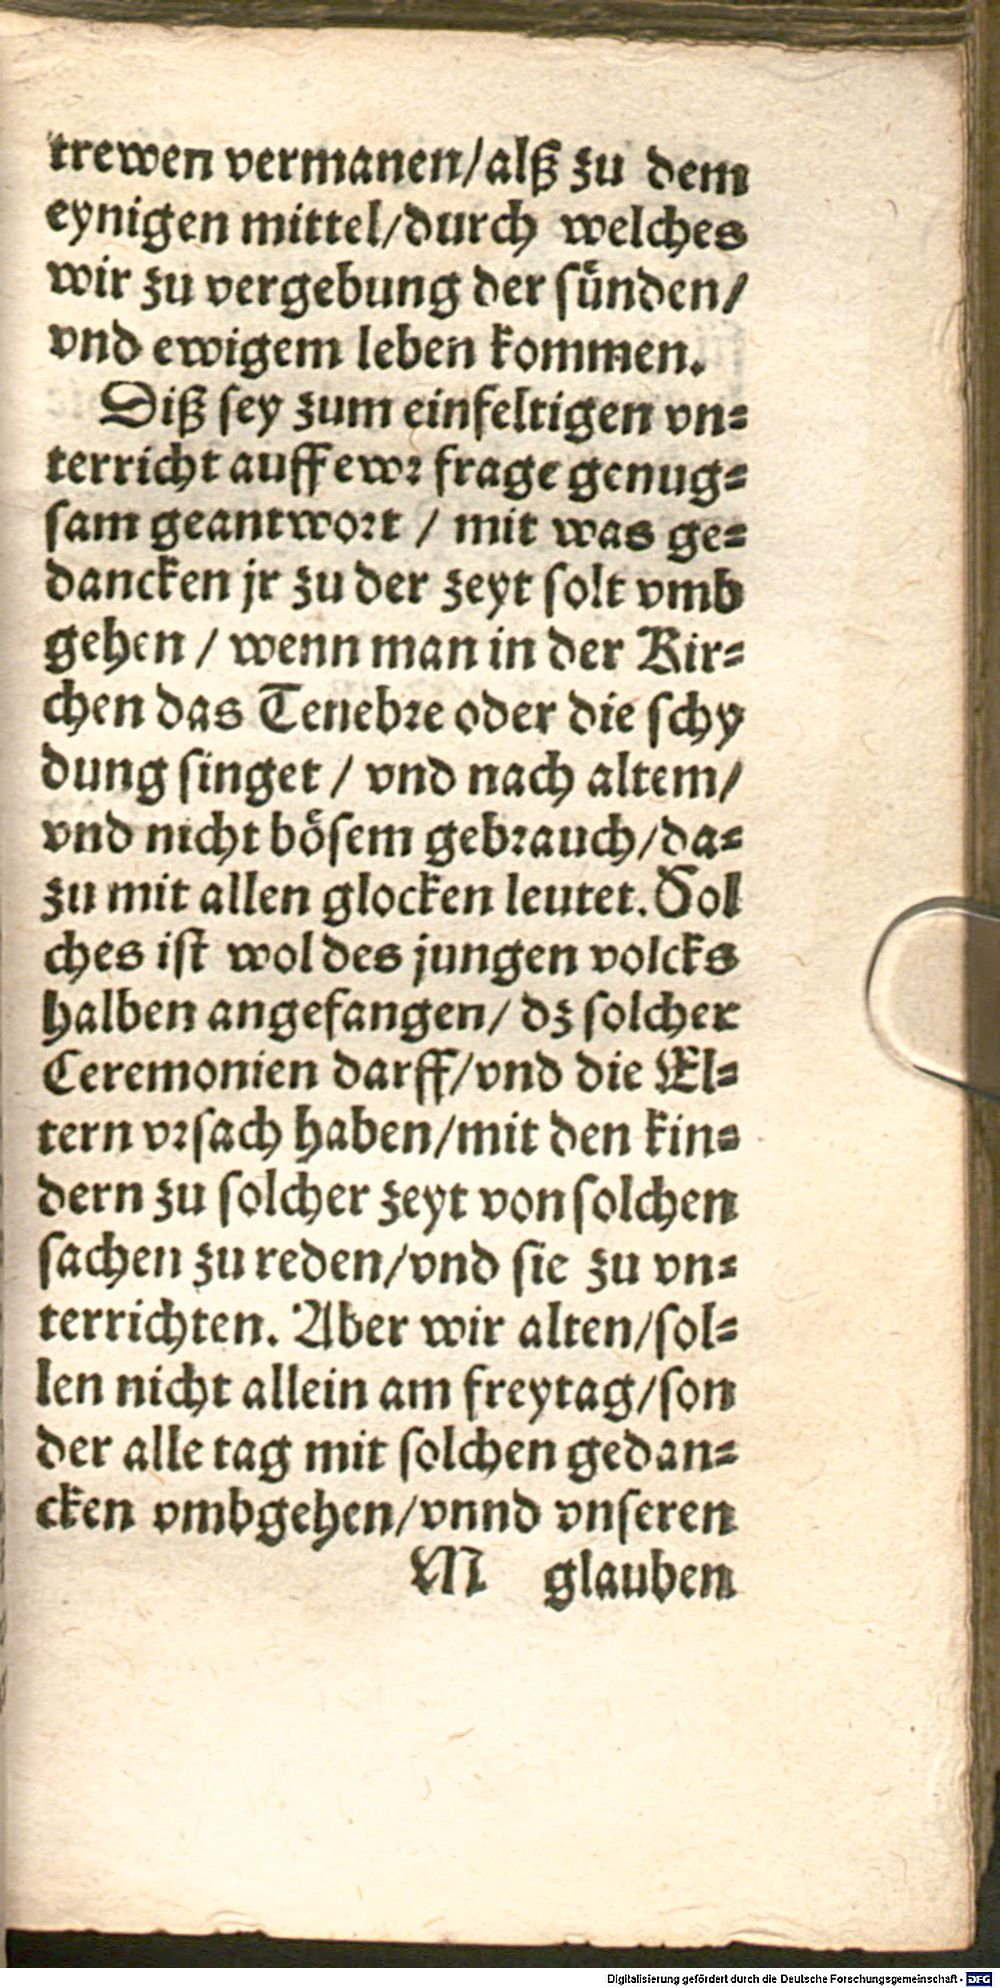 trewen vermanen/alß zu dem
eynigen mittel/durch welches
wir zu vergebung der sünden/
vnd ewigem leben kommen.
Diß sey zum einfeltigen vn=
terricht auff ewr frage genug=
sam geantwort / mit was ge=
dancken jr zu der zeyt solt vmb
gehen / wenn man in der Kir=
chen das Tenebre oder die schy
dung singet / vnd nach altem/
vnd nicht bösem gebrauch/da=
zu mit allen glocken leutet. Sol
ches ist wol des jungen volcks
halben angefangen/ dz solcher
Ceremonien darff/vnd die El=
tern vrsach haben/mit den kin=
dern zu solcher zeyt von solchen
sachen zu reden/vnd sie zu vn=
terrichten. Aber wir alten/sol=
len nicht allein am freytag/son
der alle tag mit solchen gedan=
cken vmbgehen/vnnd vnseren
M glauben
Digitalisierung gefördert durch die Deutsche Forschungsgemeinschaft - DFG